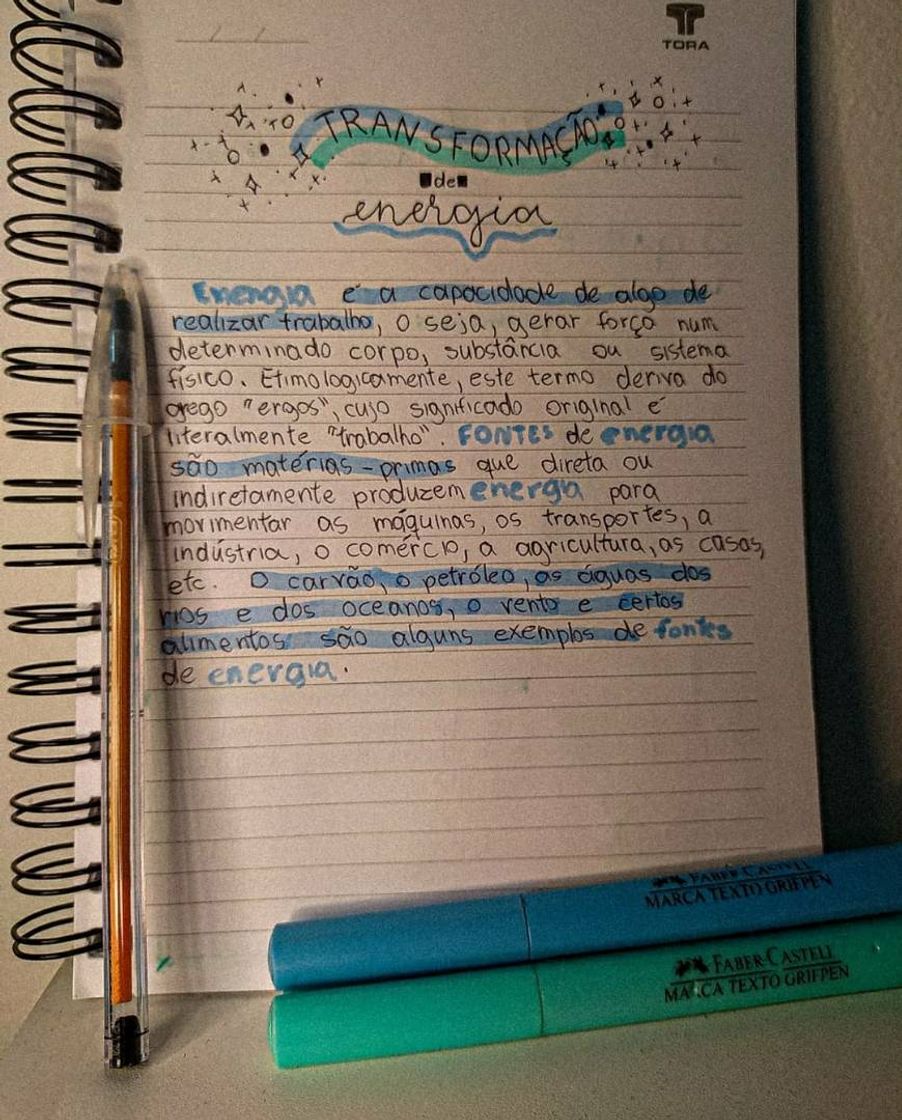 TORA
TRANSFORMAÇÃO
de
energia
Energia é a capacidade de algo de
realizar trabalho, o seja, gerar força num
determinado corpo, substância ou sistema
físico. Etimologicamente, este termo deriva do
grego "ergos", cujo significado original é
literalmente "trabalho". FONTES de energia
são matérias-primas que direta ou
indiretamente produzem energia para
movimentar as máquinas, os transportes, a
indústria, o comércio, a agricultura, as casas,
etc. O carvão, o petróleo, as águas dos
rios e dos oceanos, o vento e certos
alimentos são alguns exemplos de fontes
de energia.
FABER-CASTELL
MARCA TEXTO GRIFPEN
FABER-CASTELL
MARCA TEXTO GRIFPEN